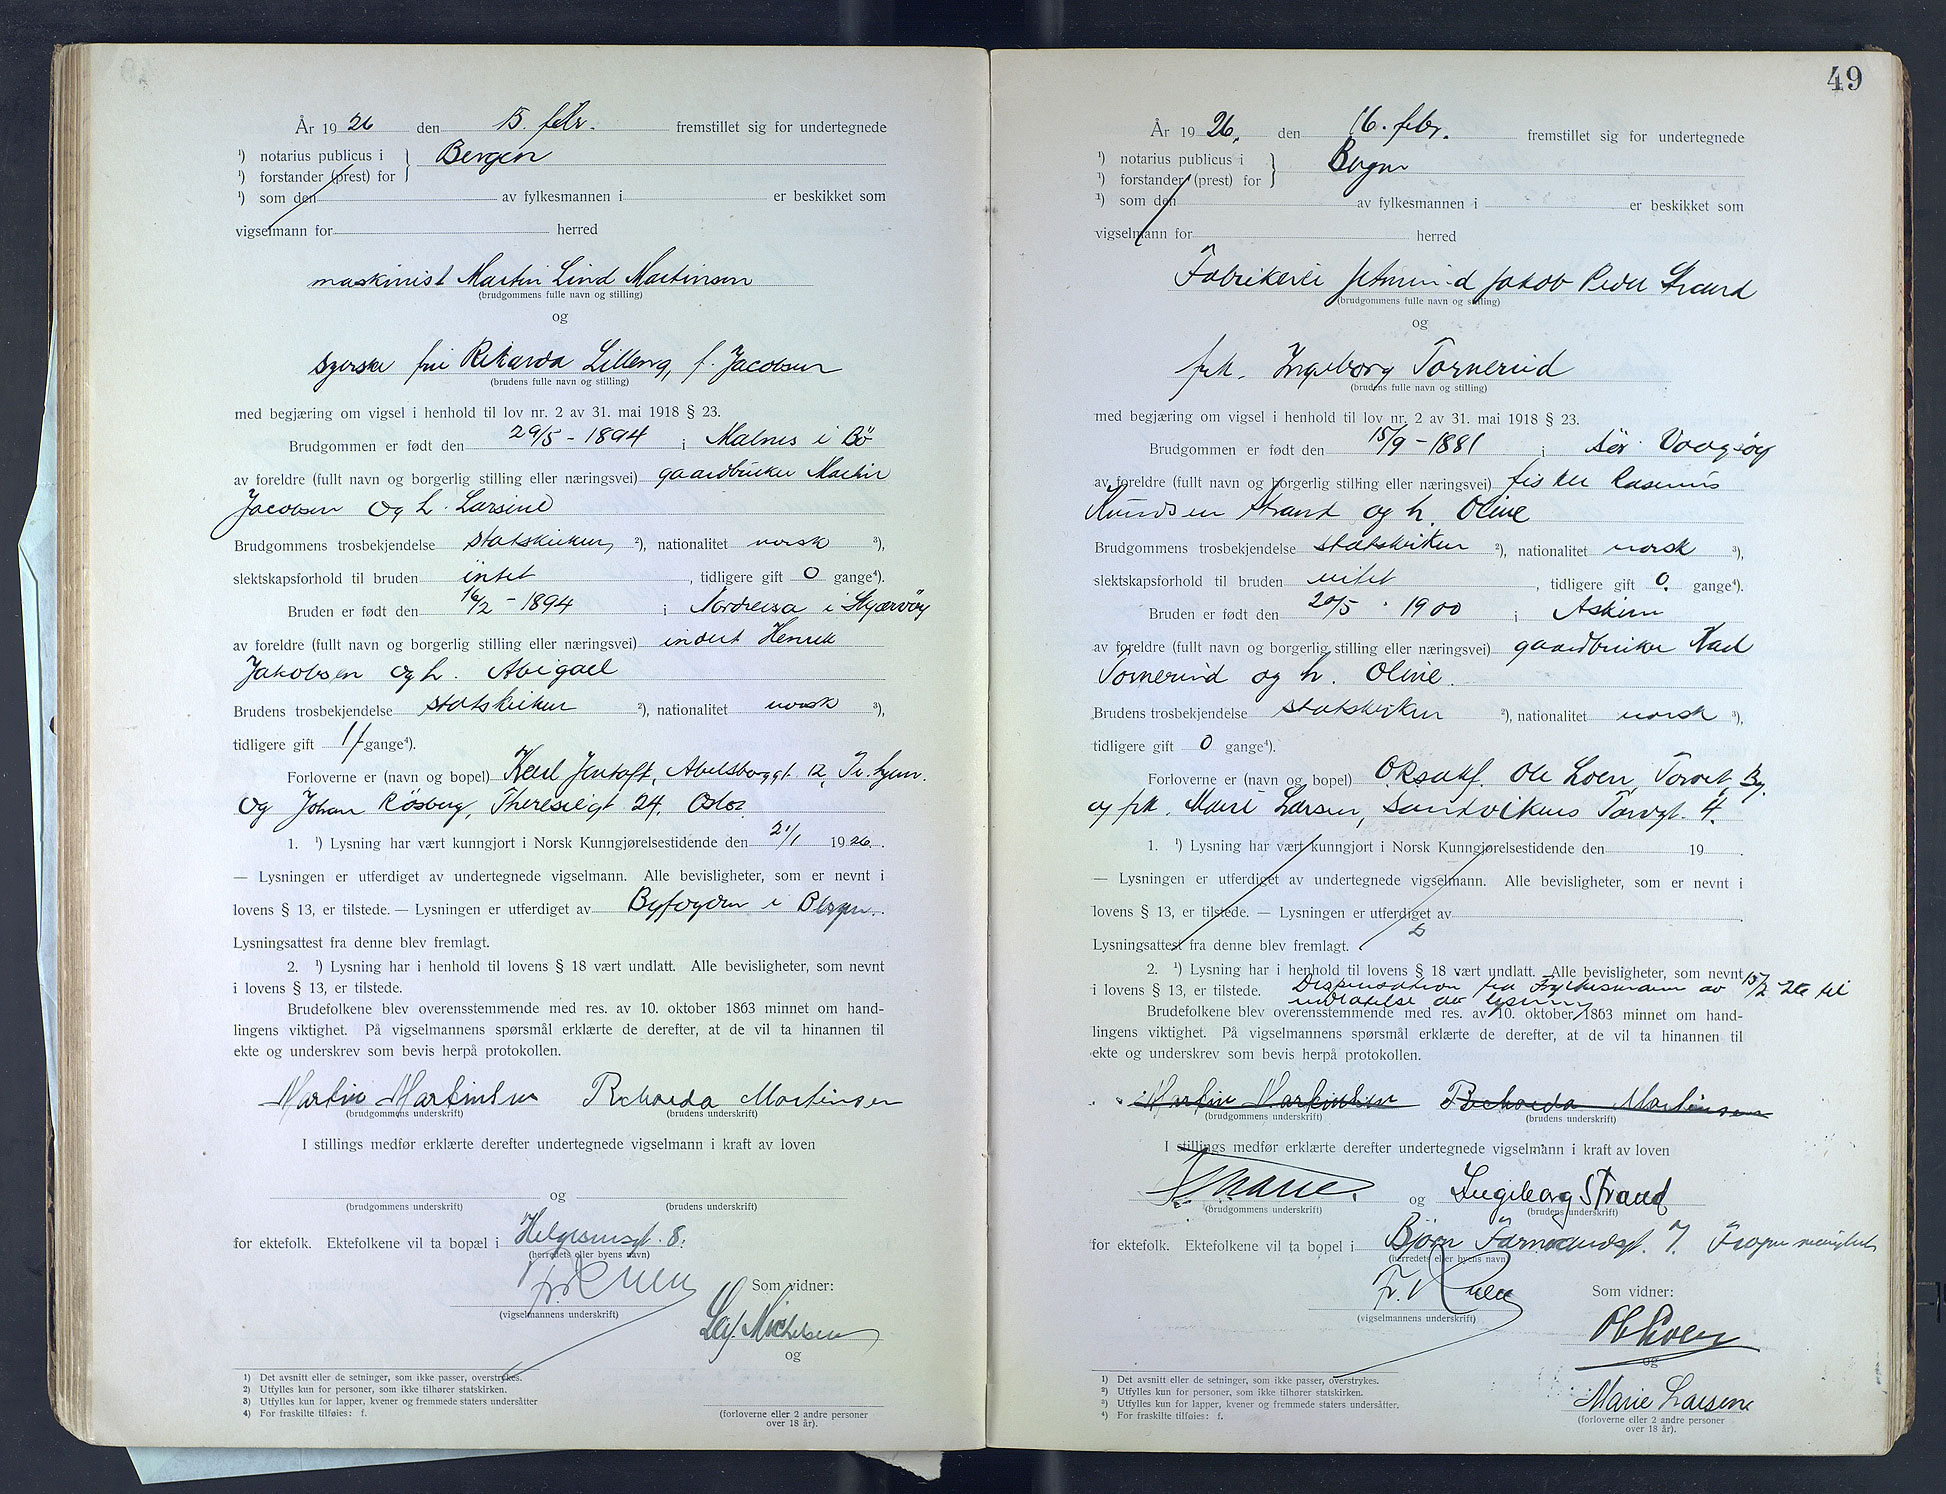 År 1926 den 15. febr. fremstillet sig for undertegnede
¹) notarius publicus i } Bergen
¹) forstander (prest) for
¹) som den av fylkesmannen i er beskikket som
vigselmann for herred
maskinist Martin Lind Martinsen
(brudgommens fulle navn og stilling)
og
syerske fru Rikarda Lilleng, f. Jacobsen
(brudens fulle navn og stilling)
med begjæring om vigsel i henhold til lov nr. 2 av 31. mai 1918 § 23.
Brudgommen er født den 29/5 - 1894 i Malnes i Bö
av foreldre (fullt navn og borgerlig stilling eller næringsvei) gaardbruker Martin
Jacobsen og h. Larsine
Brudgommens trosbekjendelse statskirken, ²), nationalitet norsk ³),
slektskapsforhold til bruden intet, tidligere gift 0 gange⁴).
Bruden er født den 16/2 - 1894 i Nordreisa i Skjærvöy
av foreldre (fullt navn og borgerlig stilling eller næringsvei) inderst Henrik
Jakobsen og h. Abigael
Brudens trosbekjendelse statskirken ²), nationalitet norsk ³),
tidligere gift 1 f gange⁴).
Forloverne er (navn og bopel) Karl Jentoft, Abelsborggt. 12, Tr.hjem.
og Johan Rösberg, Theresiegt 24. Oslo.
1. ¹) Lysning har vært kunngjort i Norsk Kunngjørelsestidende den 21/1 1926.
— Lysningen er utferdiget av undertegnede vigselmann. Alle bevisligheter, som er nevnt i
lovens § 13, er tilstede. — Lysningen er utferdiget av Byfogden i Bergen.
Lysningsattest fra denne blev fremlagt.
2. ¹) Lysning har i henhold til lovens § 18 vært undlatt. Alle bevisligheter, som nevnt
i lovens § 13, er tilstede.
Brudefolkene blev overensstemmende med res. av 10. oktober 1863 minnet om hand-
lingens viktighet. På vigselmannens spørsmål erklærte de derefter, at de vil ta hinannen til
ekte og underskrev som bevis herpå protokollen.
Martin Martinsen Richarda Martinsen
(brudgommens underskrift) (brudens underskrift)
I stillings medfør erklærte derefter undertegnede vigselmann i kraft av loven
og
(brudgommens underskrift) (brudens underskrift)
for ektefolk. Ektefolkene vil ta bopæl i Helgesensgt. 8.
(herredets eller byens navn)
Som vidner:
(vigselmannens underskrift)
Leif Michelsen
og
1) Det avsnitt eller de setninger, som ikke passer, overstrykes.
2) Utfylles kun for personer, som ikke tilhører statskirken.
3) Utfylles kun for lapper, kvener og fremmede staters undersåtter
4) For fraskilte tilføies: f.
(forloverne eller 2 andre personer
over 18 år).
49
År 1926. den 16. febr. fremstillet sig for undertegnede
¹) notarius publicus i } Bergen
¹) forstander (prest) for
¹) som den av fylkesmannen i er beskikket som
vigselmann for herred
Jakob Peder Strand
(brudgommens fulle navn og stilling)
og
frk. Ingeborg Tornerud
(brudens fulle navn og stilling)
med begjæring om vigsel i henhold til lov nr. 2 av 31. mai 1918 § 23.
Brudgommen er født den 15/9 - 1881 i Sör Vaagsöy
av foreldre (fullt navn og borgerlig stilling eller næringsvei) fisker Rasmus
Knudsen Strand og h. Oline
Brudgommens trosbekjendelse statskirken ²), nationalitet norsk ³),
slektskapsforhold til bruden intet, tidligere gift 0. gange⁴).
Bruden er født den 20/5 - 1900 i Askim
av foreldre (fullt navn og borgerlig stilling eller næringsvei) gaardbruker Karl
Tornerud og h. Oline.
Brudens trosbekjendelse statskirken ²), nationalitet norsk ³),
tidligere gift 0 gange⁴).
Forloverne er (navn og bopel) O.R.sakf. Ole Loen, Torvet, By.
og frk. Marie Larsen, Sandvikens Torvgt. 4.
1. ¹) Lysning har vært kunngjort i Norsk Kunngjørelsestidende den 19 .
— Lysningen er utferdiget av undertegnede vigselmann. Alle bevisligheter, som er nevnt i
lovens § 13, er tilstede. — Lysningen er utferdiget av
Lysningsattest fra denne blev fremlagt.
2. ¹) Lysning har i henhold til lovens § 18 vært undlatt. Alle bevisligheter, som nevnt
i lovens § 13, er tilstede. Dispensation fra Fylkesmann av 15/2 26 til
undlatelse av lysning
Brudefolkene blev overensstemmende med res. av 10. oktober 1863 minnet om hand-
lingens viktighet. På vigselmannens spørsmål erklærte de derefter, at de vil ta hinannen til
ekte og underskrev som bevis herpå protokollen.
Martin Martinsen Richarda Martinsen
(brudgommens underskrift) (brudens underskrift)
I stillings medfør erklærte derefter undertegnede vigselmann i kraft av loven
og Ingeborg Strand
(brudgommens underskrift) (brudens underskrift)
for ektefolk. Ektefolkene vil ta bopel i Bjørn Farmandsgt. 7. Frogner menighet
(herredets eller byens navn)
Som vidner:
(vigselmannens underskrift)
Ole Loen
og
Marie Larsen
1) Det avsnitt eller de setninger, som ikke passer, overstrykes.
²) Utfylles kun for personer, som ikke tilhører statskirken.
³) Utfylles kun for lapper, kvener og fremmede staters undersåtter.
⁴) For fraskilte tilføies: f.
(forloverne eller 2 andre personer
over 18 år).